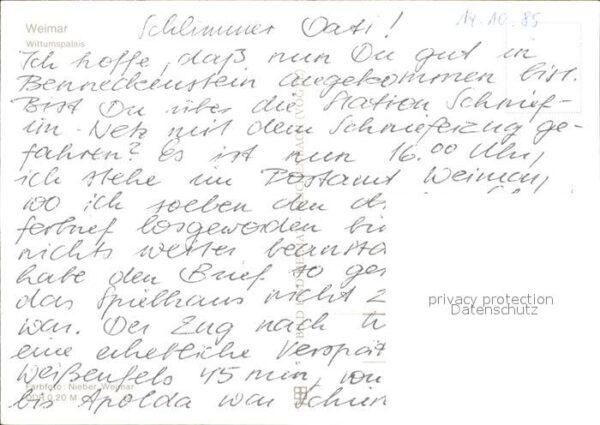 Weimar
Wittumspalais
14.10.85
Schlimmer Vati!
Ich hoffe, daß nun Du gut in
Benneckenstein angekommen bist.
Bist Du über die Station Schnief-
im-Netz mit dem Schnieferzug ge-
fahren? Es ist nun 16.00 Uhr,
ich stehe im Postamt Weimar,
wo ich soeben den
losgeworden bin
nichts weiter beansta
habe den Brief so ges
das Spielhaus nicht z
war. Der Zug nach
eine erhebliche Verspät
Weißenfels 45 min,
bis Apolda war
Farbfoto: Nieber, Weimar
0,20 M
privacy protection
Datenschutz